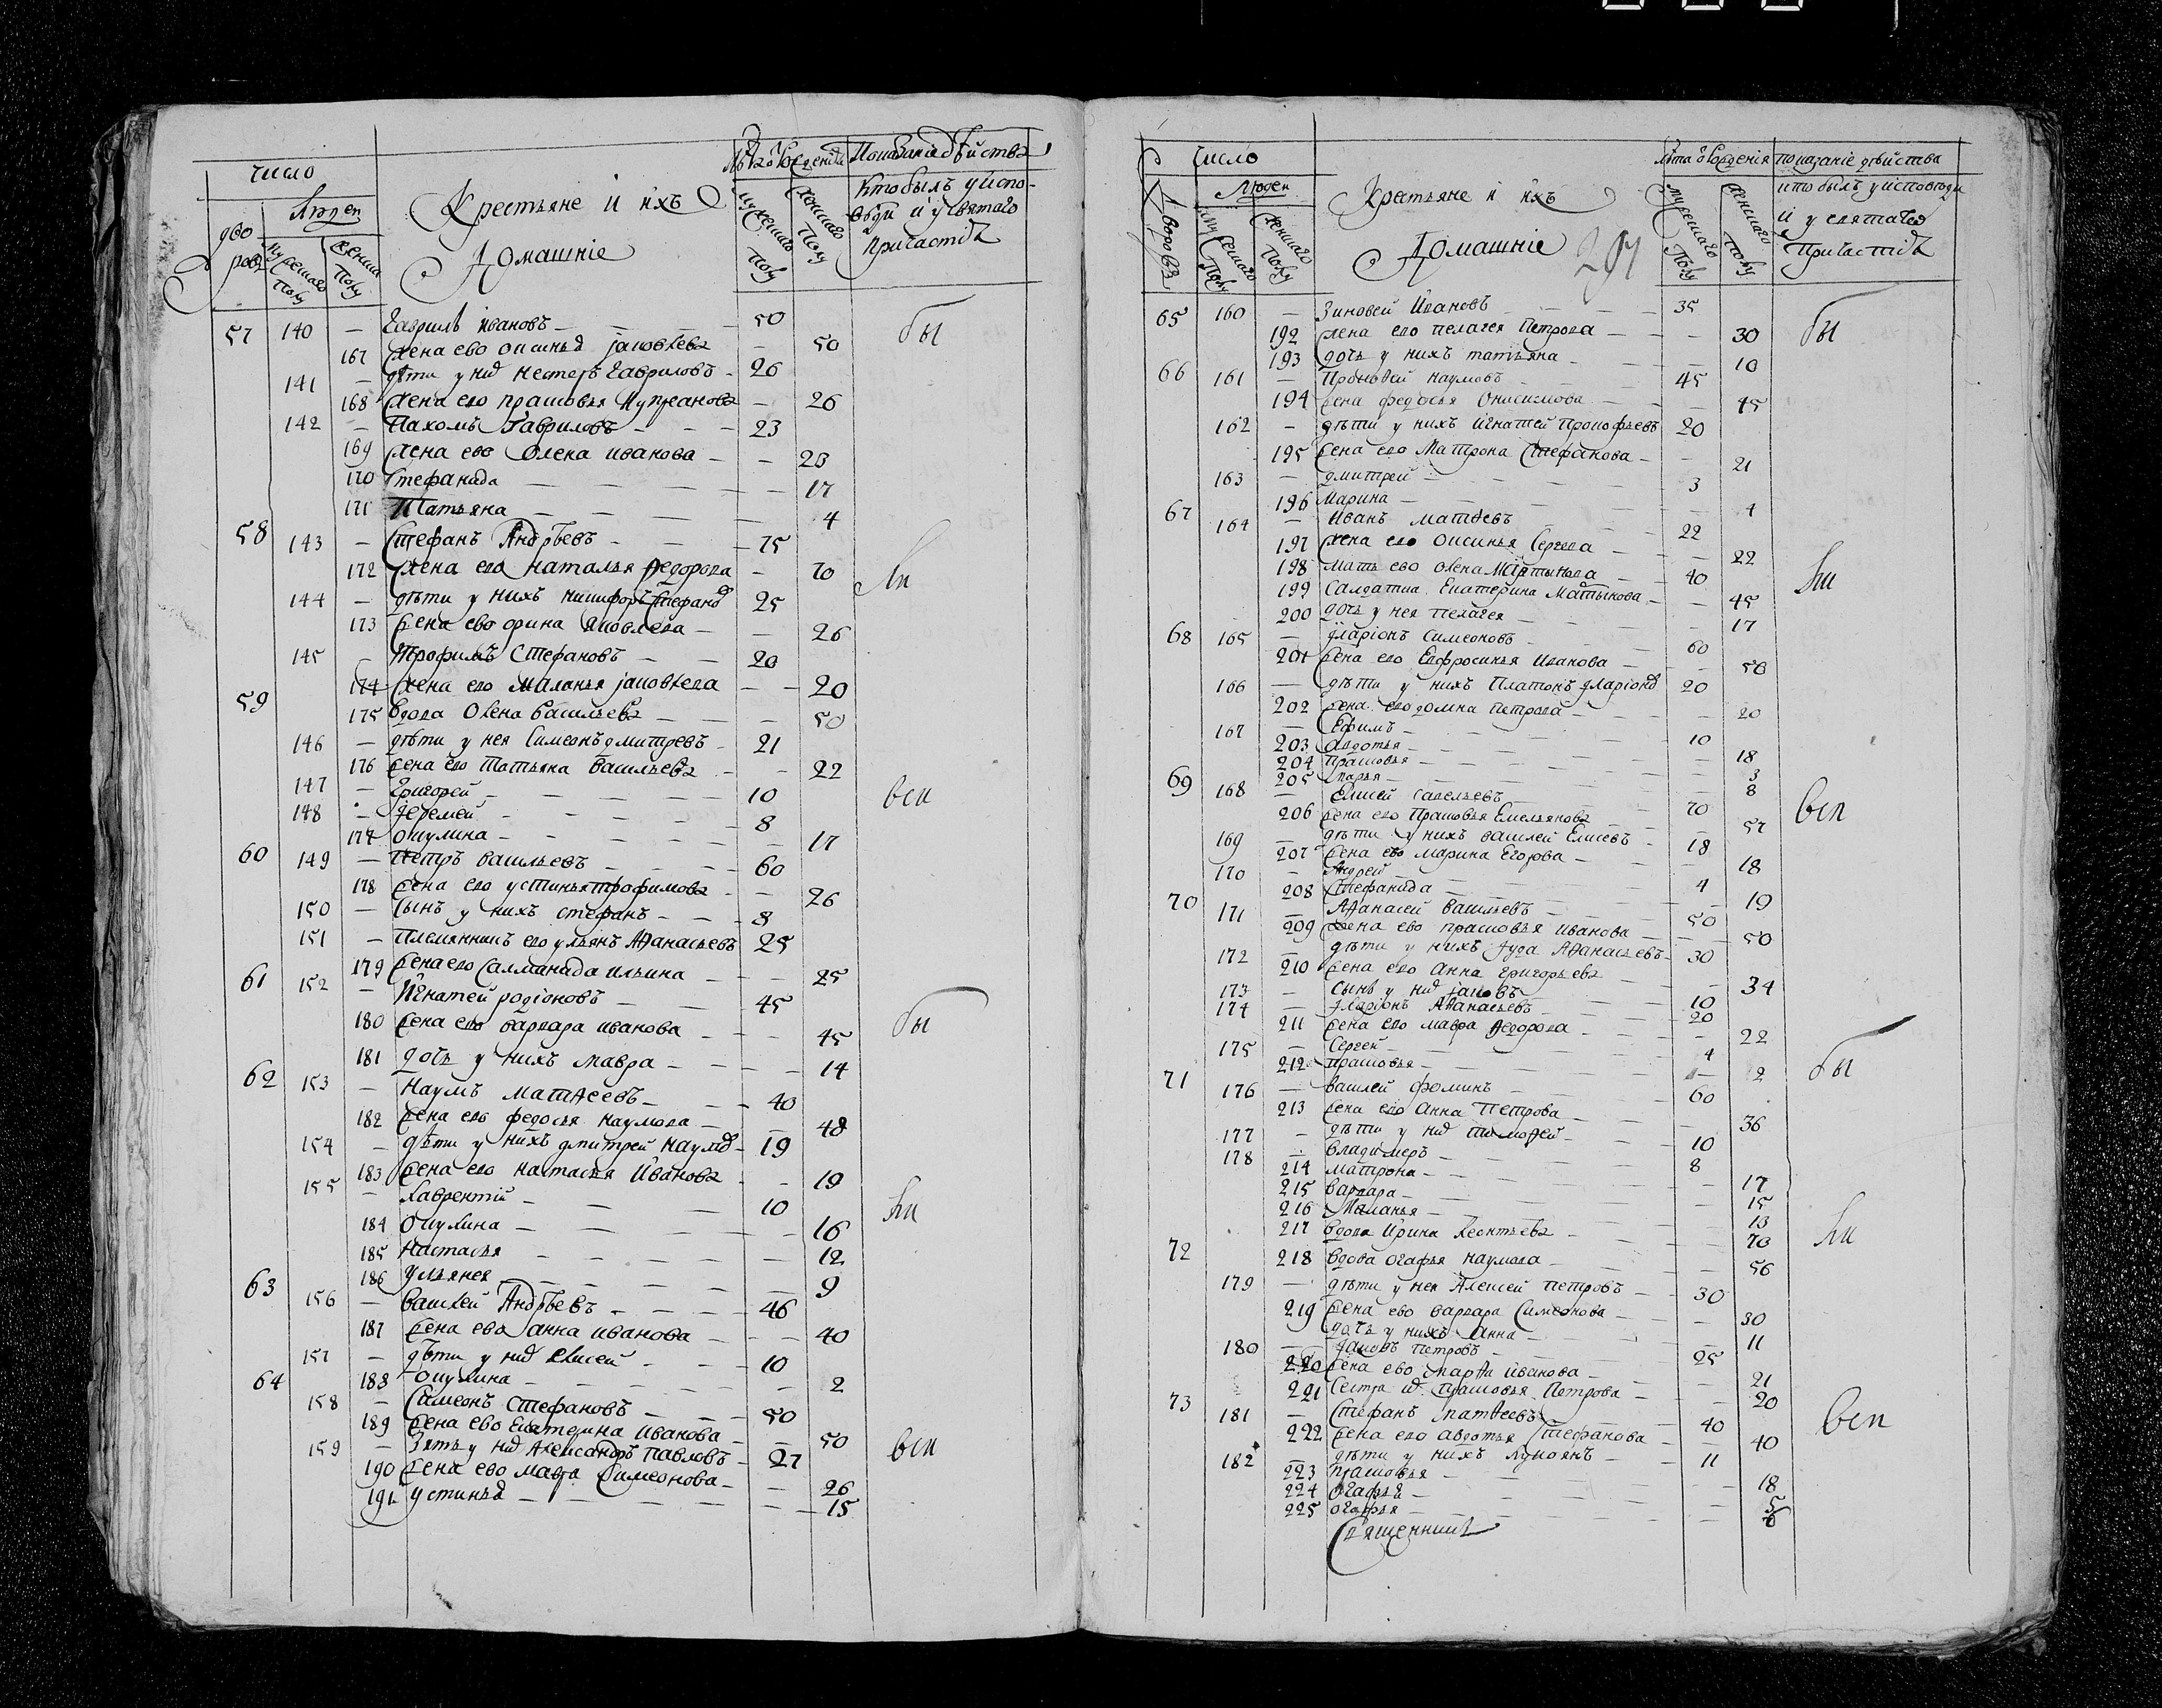 число
Лѣта ѿ Рожденiѧ
Показанiе дѣйства
дво ровъ
Людеи
мужеска Полу
женска Полу
Крестьяне и ихъ
Домашнiе
мужеска полу
женскаго Полу
кто былъ у испо-
вѣди и у святаго
причастiѧ
57 140 — Гаврилъ Ивановъ — 50 бы
167 жена ево оксинья яковлева — 50
141 — дѣти у них Нестеръ Гавриловъ — 26
168 жена его прасковья Купреянова — 26
142 — Пахомъ Гавриловъ — 23
169 жена ево Олена иванова — 23
170 Стефанида — 17
171 Татьяна — 4
58 143 — Стефанъ Андрѣевъ — 75
172 жена ево наталья Ѳедорова — 70 ли
144 — дѣти у нихъ никифоръ Стефанов 25
173 жена ево орина яковлева — 26
145 — Трофимъ Стефановъ — 20
174 жена его маланья яковлева — 20
59 175 вдова Овена васильева — 50
146 — дѣти у нея Симеонъ дмитревъ — 21
176 жена его Татьяна васильева — 22
147 — Григорей — 10 вси
148 — Iеремей — 8
177 окулина — 17
60 149 — Петръ васильевъ — 60
178 жена его устинья трофимова — 26
150 — сынъ у нихъ стефанъ — 8
151 — Племянникъ его ульянъ Аѳанасьевъ 25
179 жена его Салманида ильина — 25
61 152 — Игнатей родiоновъ — 45
180 жена его варвара иванова — 45 бы
181 дочь у нихъ мавра — 14
62 153 — Наумъ матѳеевъ — 40
182 жена его федосья наумова — 48
154 — дѣти у нихъ дмитрей наумов — 19
183 жена его настасья Иванова — 19
155 — лаврентiй — 10 ли
184 окулина — 16
185 Настасья — 12
186 ульянея — 9
63 156 — василей Андрѣевъ — 46
187 жена ево анна иванова — 40
157 — дѣти у них елисей — 10
188 окулина — 2
64 158 — Симеонъ Стефановъ — 50
189 жена ево Екатерина иванова — 50
159 — Зять у них Александръ павловъ — 27 вси
190 жена ево мавра Симеонова — 26
191 устинья — 15
число
Лѣта ѿ Рожденiя
показанiе дѣйства
Дворовъ
Людеи
мужескаго Полу
женскаго Полу
Крестьяне и ихъ
Домашнiе
мужескаго Полу
женскаго Полу
кто былъ у исповѣди
и у святаго
Причастiѧ
65 160 — Зиновей Ивановъ — 35
192 жена его пелагея Петрова — 30 бы
193 дочь у нихъ татьяна — 10
66 161 — Прокофей наумовъ — 45
194 жена федосья Онисимова — 45
162 — дѣти у нихъ игнатей Прокофьевъ 20
195 жена его Матрона Стефанова — 21
163 — дмитрей — 3
196 Марина — 4
67 164 — Иванъ матѳевъ — 22
197 жена его оксинья Сергева — 22
198 мать ево овена мартынова — 40 ли
199 Салдатка Екатерина Матынова — 45
200 дочь у нея пелагея — 17
68 165 — Iларiонъ Симеоновъ — 60
201 жена его Евфросинья Иванова — 50
166 — дѣти у нихъ Платонъ Iларiонов 20
202 жена его домна петрова — 20
167 — Ефимъ — 10
203 авдотья — 18
204 прасковья — 3
205 марья — 8
69 168 — Елисей савельевъ — 70 вси
206 жена его Прасковья Емельянова — 57
169 — дѣти у нихъ василей Елисевъ — 18
207 жена ево марина Егорова — 18
170 — Андрей — 4
208 Стефанида — 19
70 171 — Аѳанасей васильевъ — 50
209 жена ево прасковья иванова — 50
172 — дѣти у нихъ Iуда Аѳанасьевъ — 30
210 жена его анна григорьева — 34
173 — сынъ у них яковъ — 10
174 — Iларiонъ Аѳанасьевъ — 20
211 жена его мавра Ѳедорова — 22
175 — Сергей — 4
212 прасковья — 2 бы
71 176 — василей фоминъ — 60
213 жена его Анна Петрова — 36
177 — дѣти у них тимоѳей — 10
178 — владимеръ — 8
214 матрона — 17
215 варвара — 15
216 Маланья — 13
217 вдова Ирина леонтьева — 70 ли
72 218 вдова огафья наумова — 56
179 — дѣти у нея Алексей петровъ — 30
219 жена ево варвара Симеонова — 30
дочь у нихъ Анна — 11
180 — Iаковъ петровъ — 25
220 жена ево марѳа иванова — 21
221 Сестра их прасковья Петрова — 20
73 181 — Стефанъ матѳеевъ — 40 вси
222 жена его авдотья Стефанова — 40
182 — дѣти у нихъ лукоянъ — 11
223 прасковья — 18
224 огафья — 5
225 огафья — 6
Священникъ